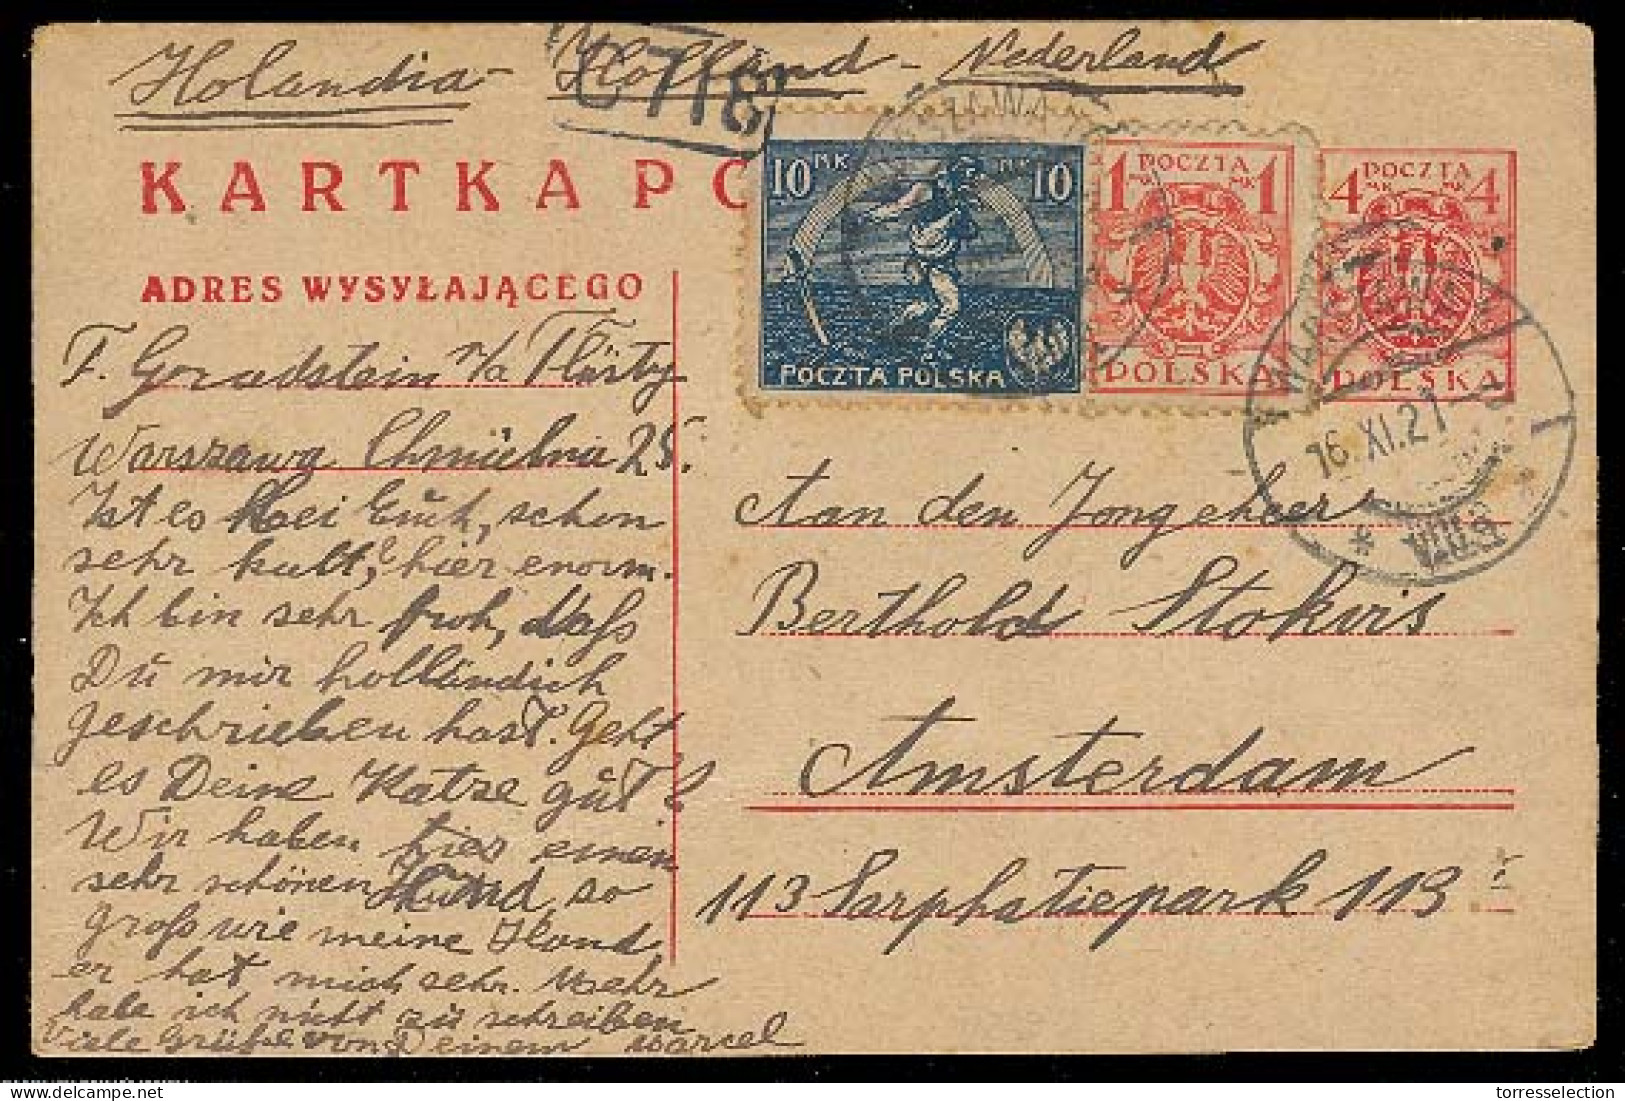 Holandia - Holland - Nederland
C 718
KARTKA PO
10 MK MK 10
POCZTA POLSKA
1 POCZTA 1
MK MK
POLSKA
4 POCZTA 4
MK MK
POLSKA
WARSZAWA
WARSZAWA
16.XI.21
ADRES WYSYŁAJĄCEGO
F. Goradstein
Warszawa Chmielna 25.
Ist es bei Euch, schon
sehr kalt, hier enorm.
Ich bin sehr froh, dass
Du mir holländich
geschrieben hast. Geht
es Deine Katze gut?
Wir haben hier einen
sehr schönen Hund, so
gross wie meine Hand
er hat mich sehr. Mehr
habe ich nicht zu schreiben
Viele Grüsse von Deinem Marcel
Aan den Jongeheer
Berthold Stokvis
Amsterdam
113 Sarphatiepark 113
torresselection